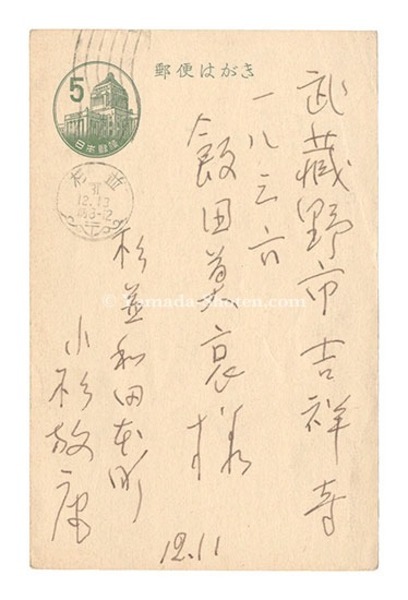 郵便はがき
5
日本郵便
杉並
12.13
武蔵野市吉祥寺
一八三六
飯田善国様
杉並和田本町
小杉放庵
12.11
© Yamada-Shoten.com